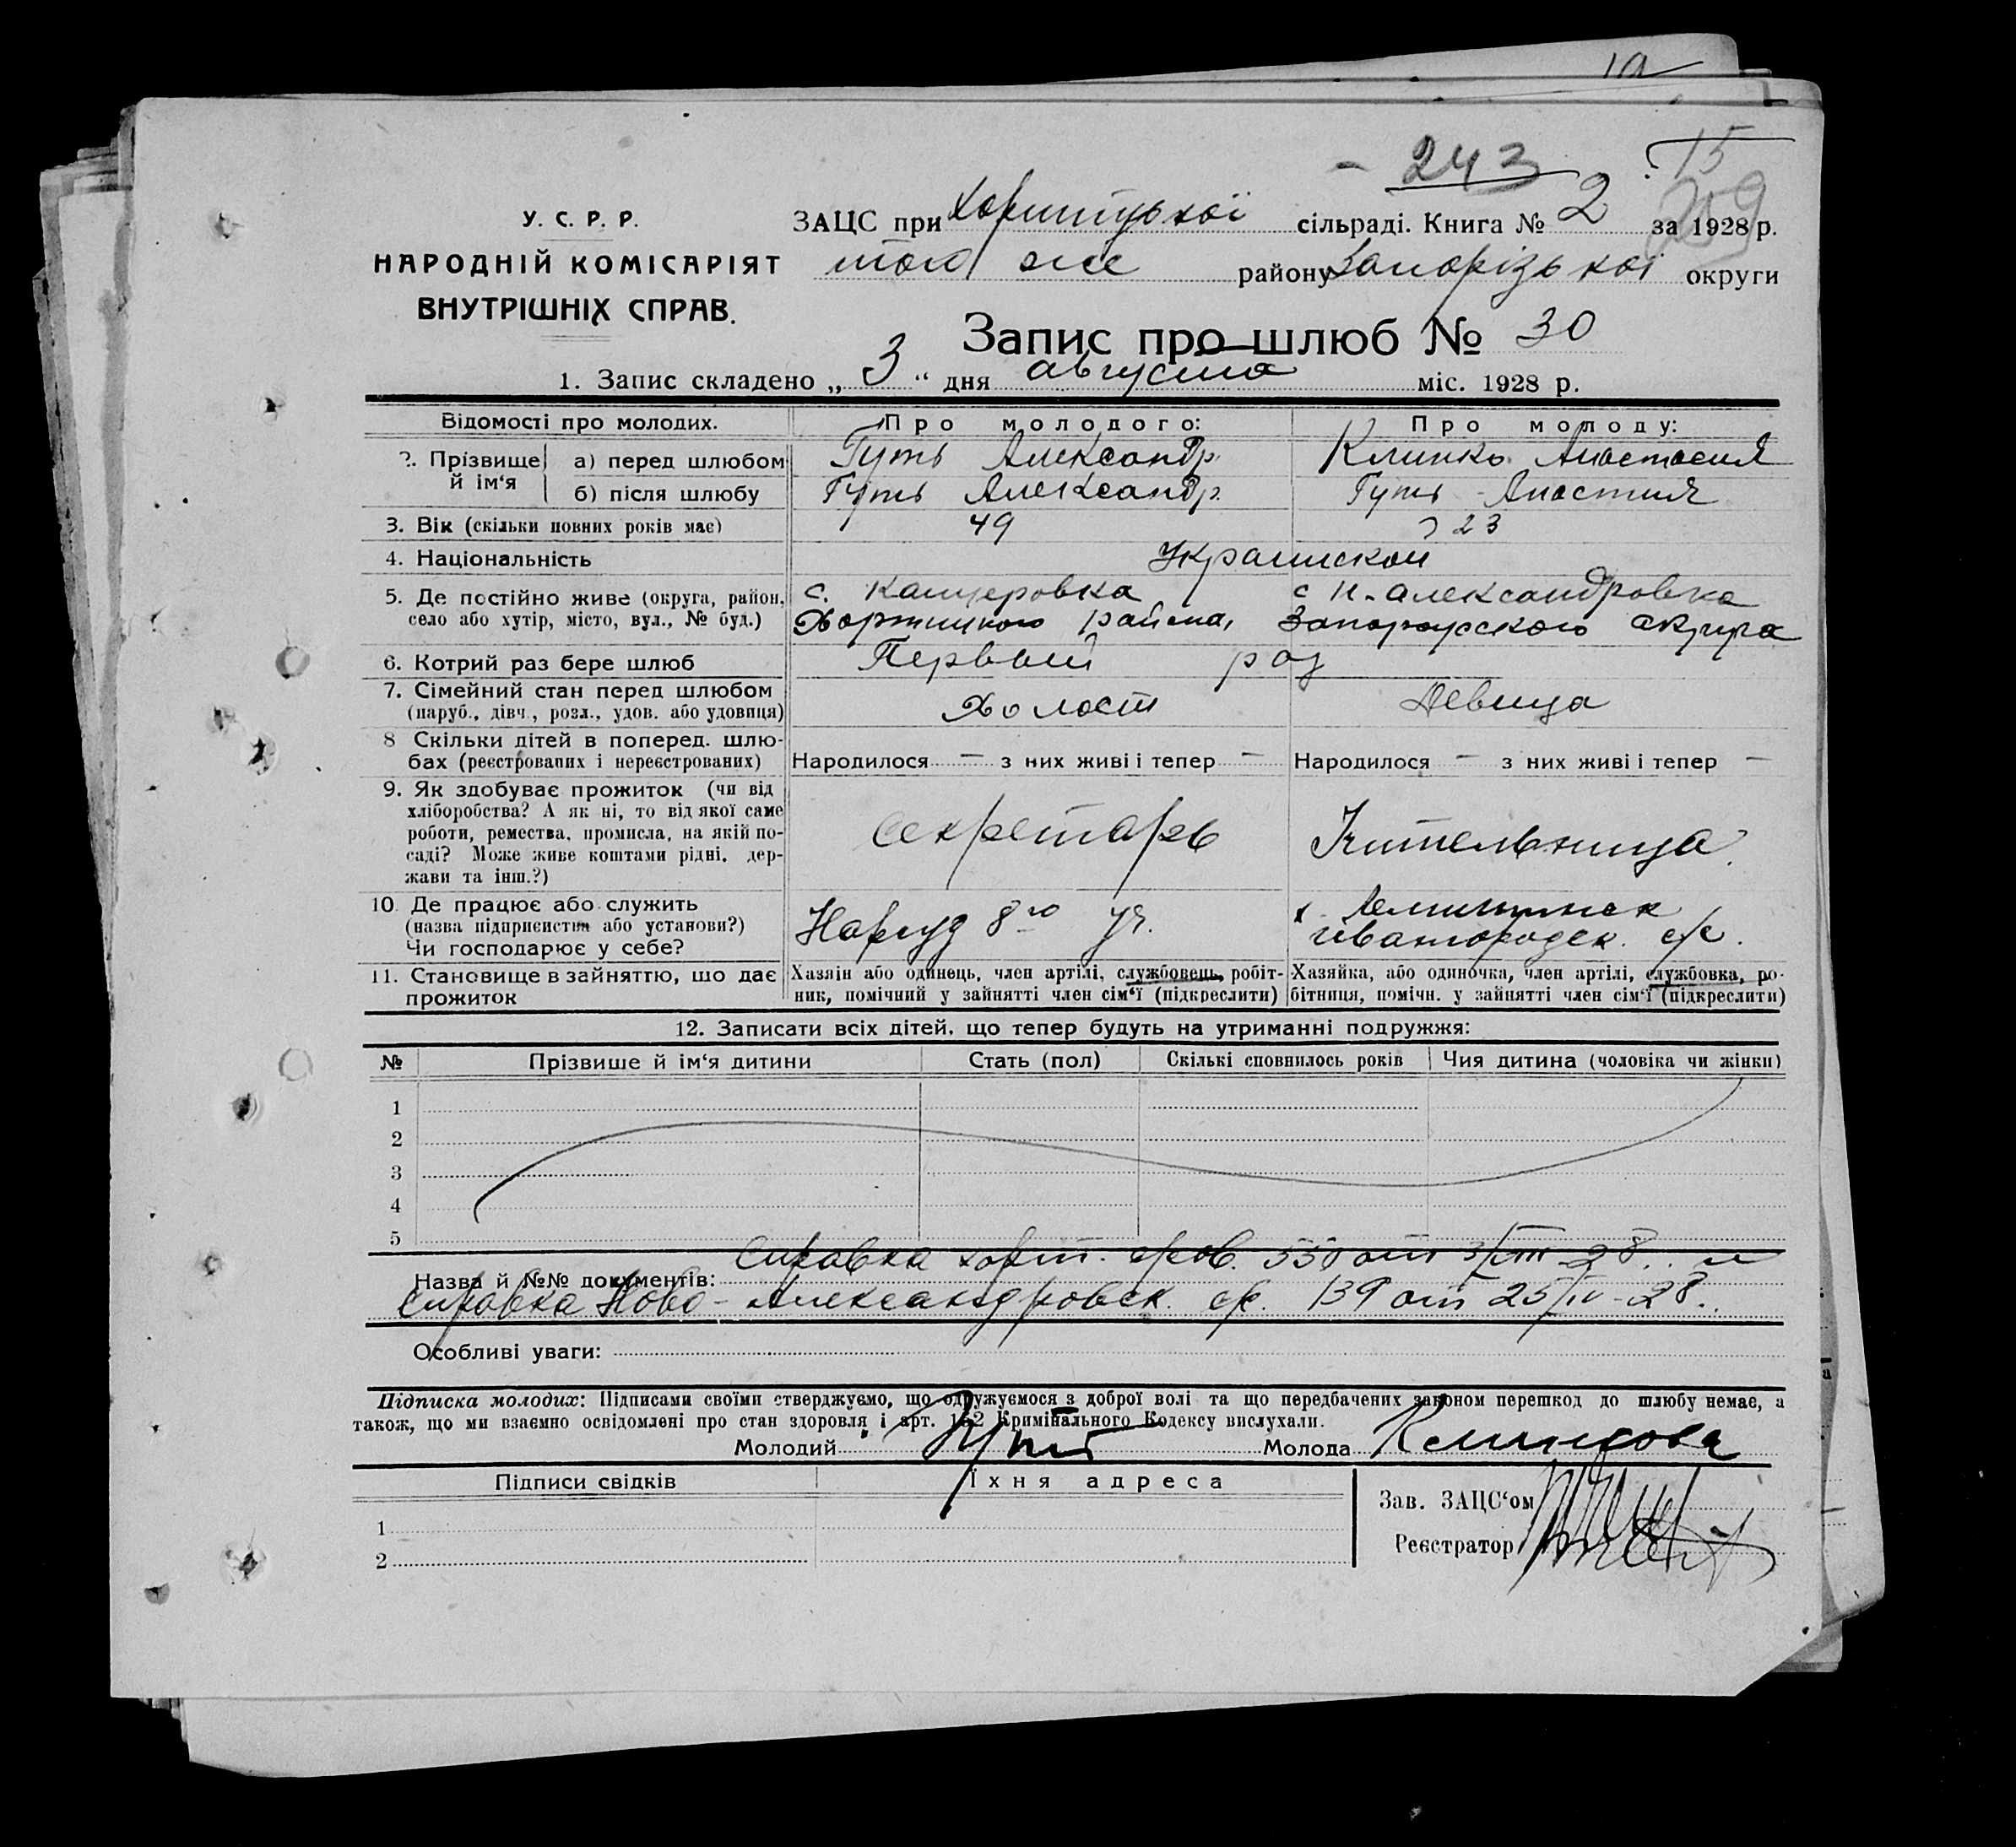 19
- 243
15
259
У. С. Р. Р.
НАРОДНІЙ КОМІСАРІЯТ
ВНУТРІШНІХ СПРАВ.
ЗАЦС при Хортицької сільраді. Книга № 2 за 1928 р.
того же району Запорізької округи
Запис про шлюб № 30
1. Запис складено „ 3 “ дня августа міс. 1928 р.
Відомості про молодих. Про молодого: Про молоду:
2. Прізвище й ім‘я а) перед шлюбом Гуть Александр Клинко Анастасия
б) після шлюбу Гуть Александр Гуть Анастия
3. Вік (скільки повних років має) 49 23
4. Національність Украинской
5. Де постійно живе (округа, район, с. Канцеровка с Н-Александровка
село або хутір, місто, вул., № буд.) Хортицкого района, Запорожского округа
6. Котрий раз бере шлюб Первый раз
7. Сімейний стан перед шлюбом
(паруб., дівч., розл., удов. або удовиця) Холост Девица
8 Скільки дітей в поперед. шлю-
бах (реєстрованих і нереєстрованих) Народилося — з них живі і тепер — Народилося — з них живі і тепер —
9. Як здобуває прожиток (чи від
хліборобства? А як ні, то від якої саме
роботи, ремества, промисла, на якій по- Секретарь Учительница
саді? Може живе коштами рідні, дер-
жави та інш.?)
10. Де працює або служить
(назва підприємства або установи?) Нарсуд 8го уч.
Чи господарює у себе? с/с.
11. Становище в зайняттю, що дає Хазяін або одинець, член артілі, службовець, робіт- Хазяйка, або одиночка, член артілі, службовка, ро-
прожиток ник, помічний у зайнятті член сім‘ї (підкреслити) бітниця, помічн. у зайнятті член сім‘ї (підкреслити)
12. Записати всіх дітей, що тепер будуть на утриманні подружжя:
№ Прізвише й ім‘я дитини Стать (пол) Скількі сповнилось років Чия дитина (чоловіка чи жінки)
1
2
3
4
5
Справка Хорт. с/сов. 550 от 3/VIII-28. и
Назва й №№ документів:
Справка Ново-Александровск. с/с. 139 от 25/IV-28.
Особливі уваги:
Підписка молодих: Підписами своїми стверджуємо, що одружуємося з доброї волі та що передбачених законом перешкод до шлюбу немає, а
також, що ми взаємно освідомлені про стан здоровля і арт. 152 Кримінального Кодексу вислухали.
Молодий Гуть Молода
Підписи свідків Їхня адреса
Зав. ЗАЦС‘ом
1
Реєстратор
2